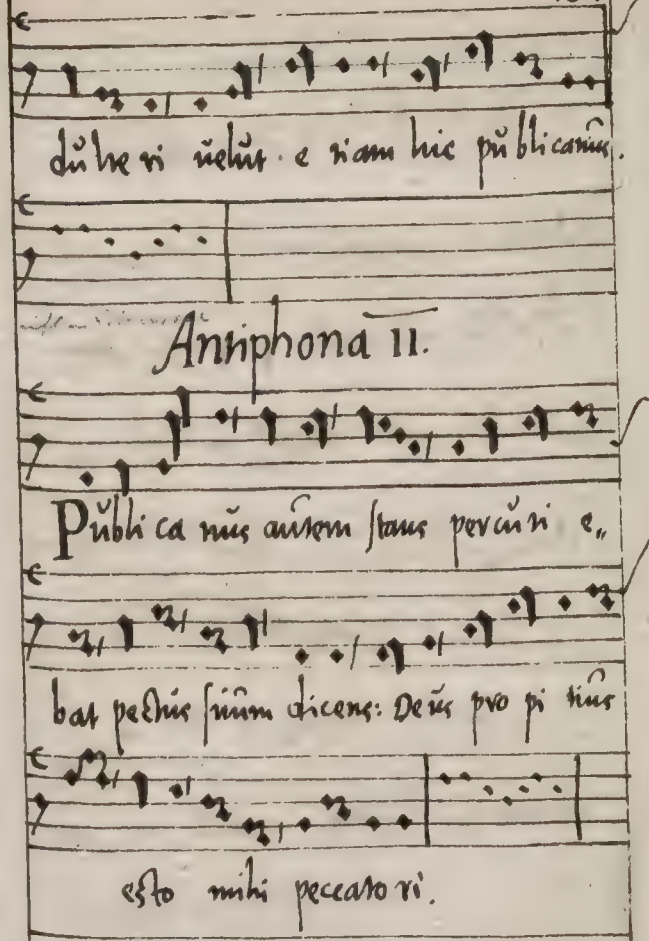 dŭlte ri ŭelŭt e tiam hic pŭ blicanŭs.
Antiphona II.
Pŭbli ca nŭs aŭtem stans percŭti e„
bat pectŭs sŭŭm dicens: Deŭs pro pi tiŭs
esto mihi peccato ri.